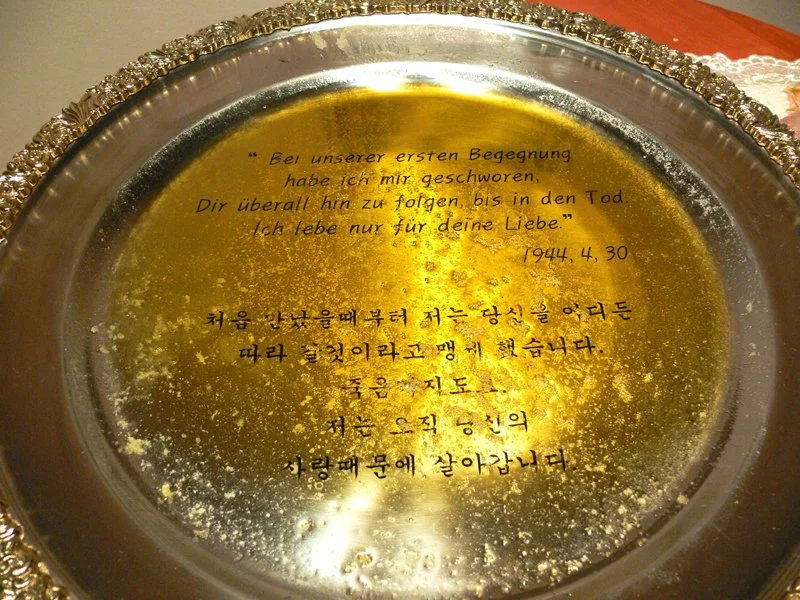 “ Bei unserer ersten Begegnung
habe ich mir geschworen,
Dir überall hin zu folgen, bis in den Tod.
Ich lebe nur für deine Liebe.”
1944, 4, 30
처음 만났을때부터 저는 당신을 어디든
따라 갈것이라고 맹세 했습니다.
죽음까지도요.
저는 오직 당신의
사랑때문에 살아갑니다.